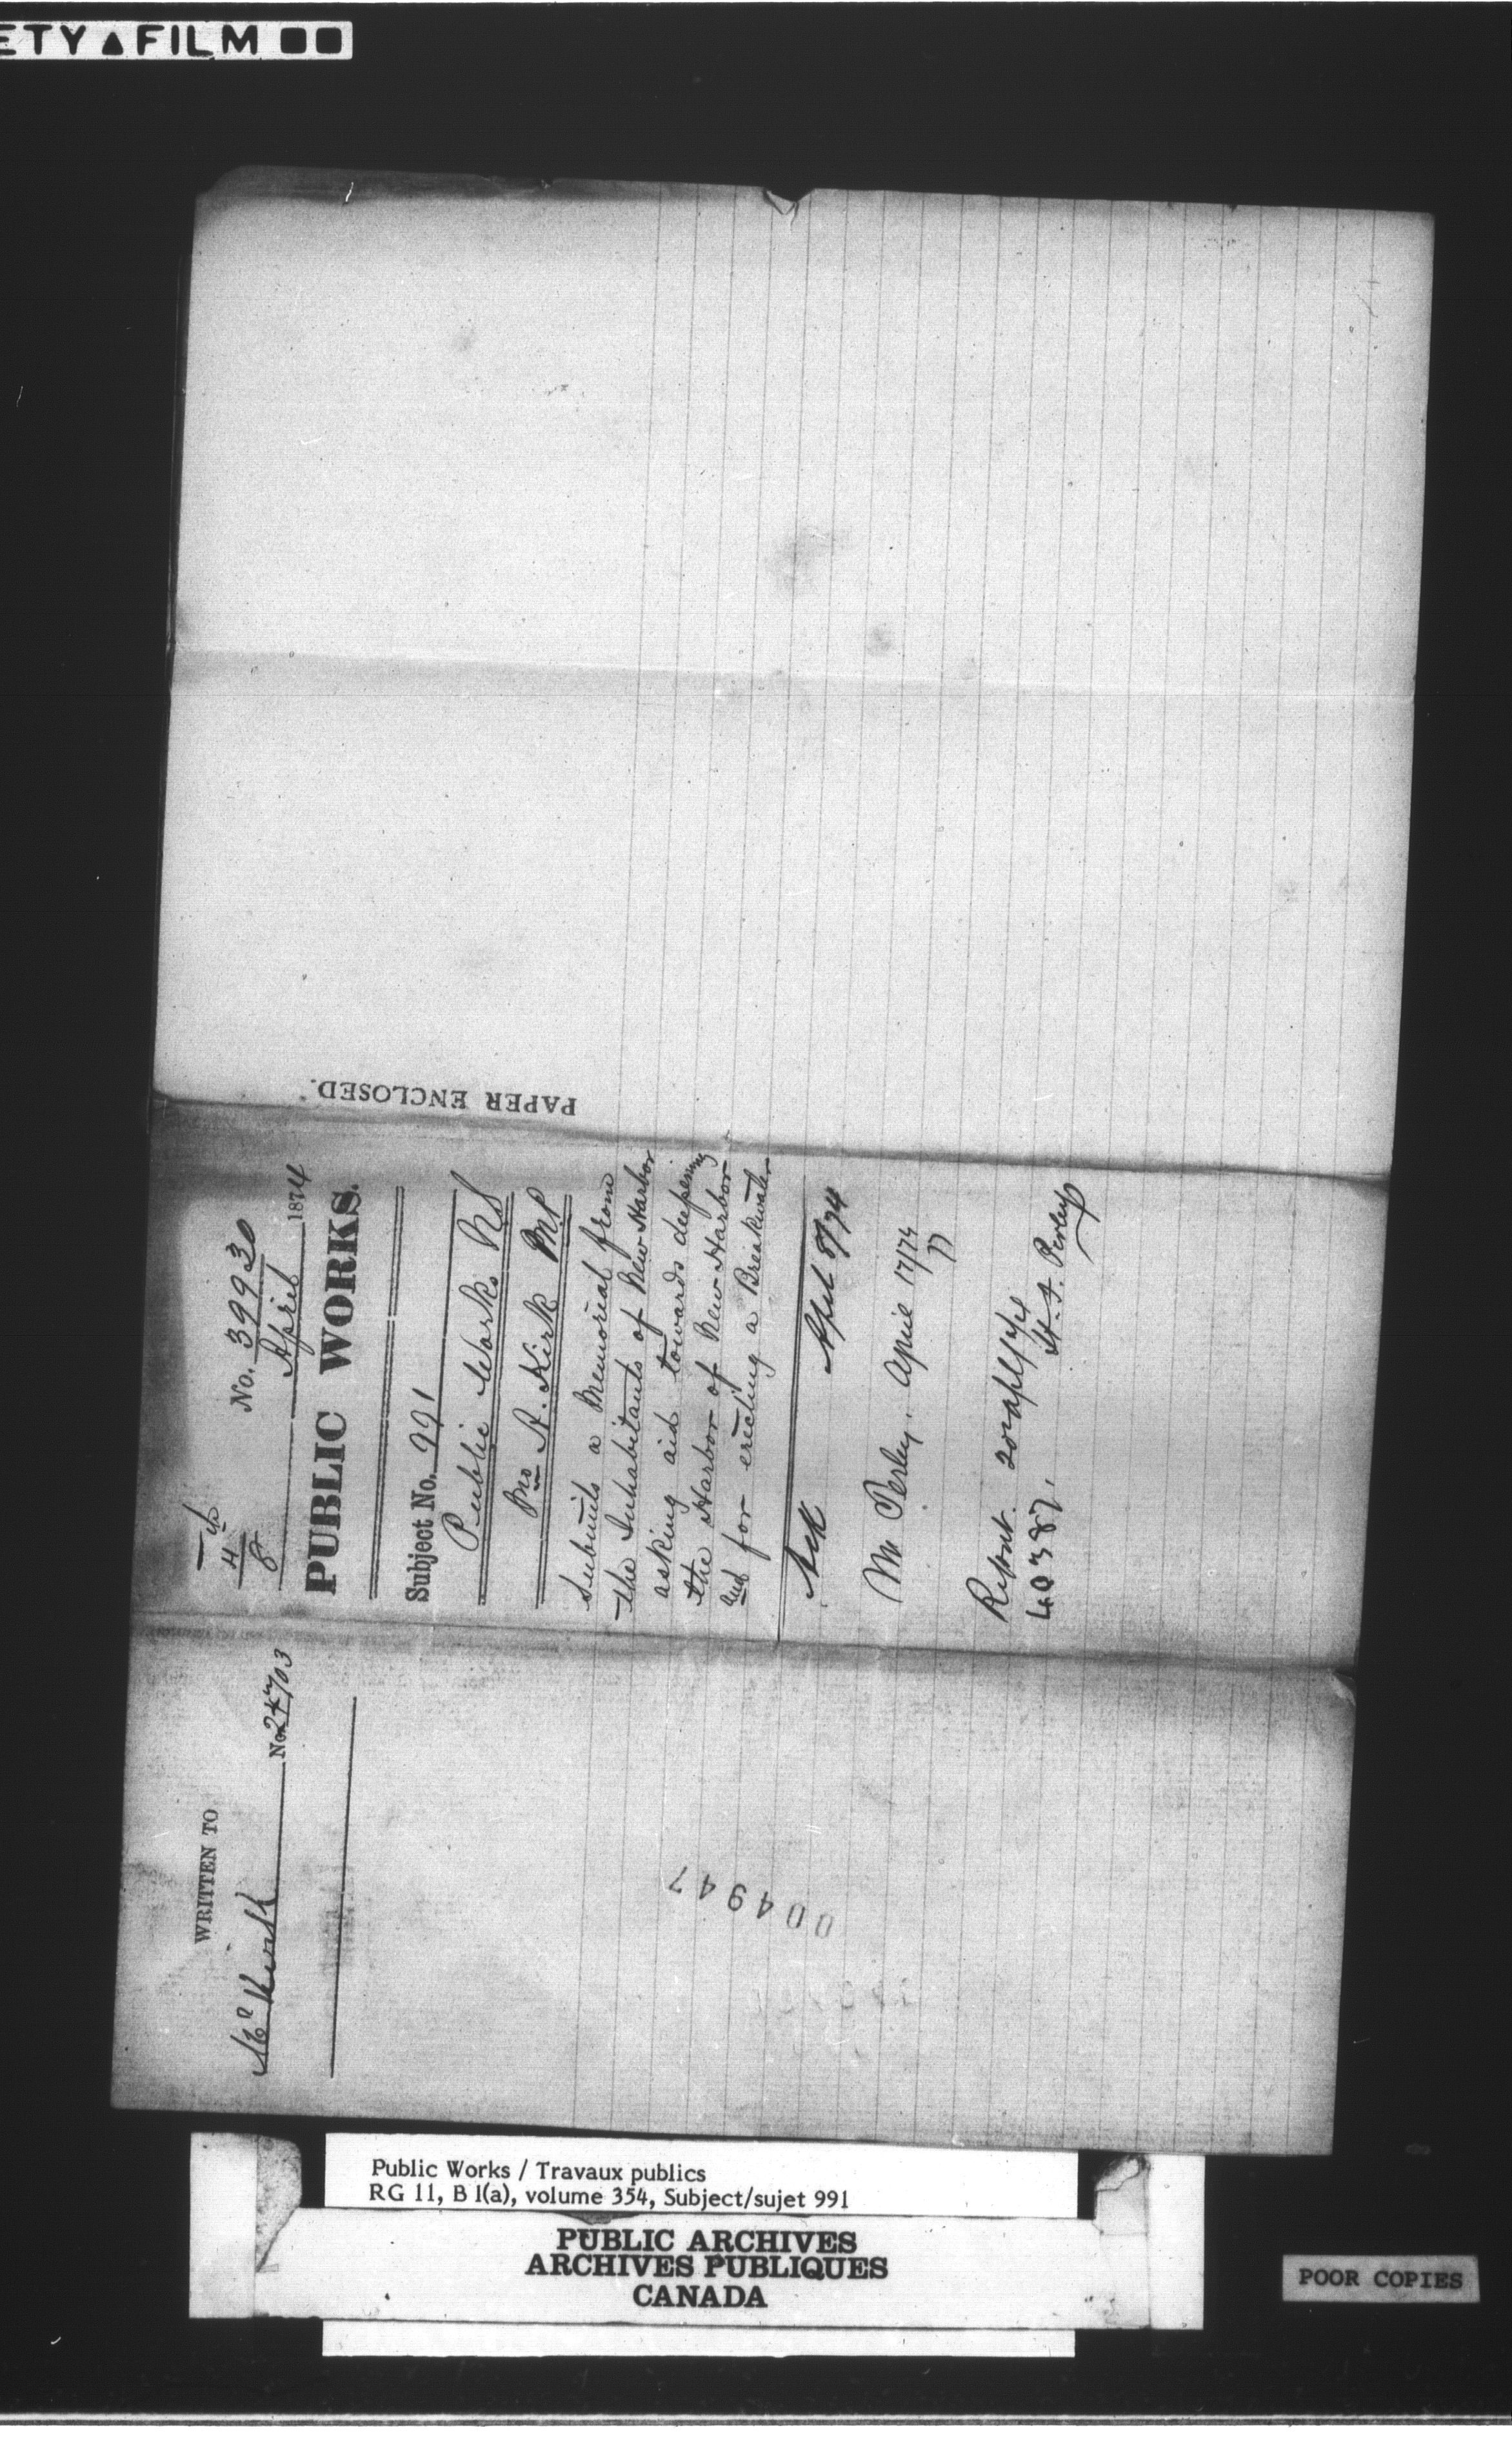 ETY▲FILM
PAPER ENCLOSED.
4th
8
No. 39930
April 1874
PUBLIC WORKS.
Subject No. 991
Public Works NS
Mr Kirk MP
Submits a Memorial from
the Inhabitants of New Harbor
asking aid towards deepening
the Harbor of New Harbor
and for erecting a Breakwater
Ack April 8/74
Mr Perley. April 17/74
Report 20 apl/74
40387. H. F. Perley
WRITTEN TO
Mr Kirk No.
004947
Public Works / Travaux publics
RG 11, B 1(a), volume 354, Subject/sujet 991
PUBLIC ARCHIVES
ARCHIVES PUBLIQUES
CANADA
POOR COPIES